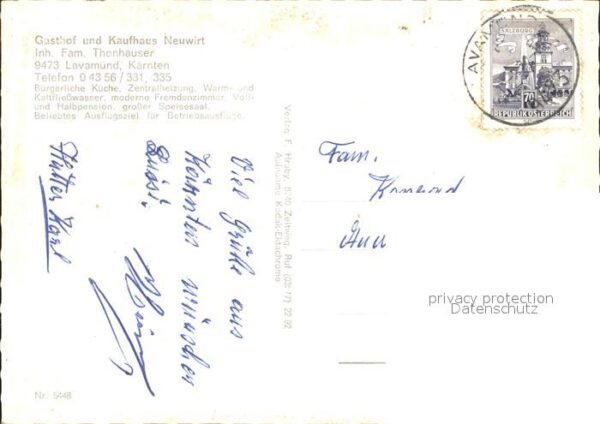 Gasthof und Kaufhaus Neuwirt
Inh. Fam. Thonhauser
9473 Lavamünd, Kärnten
Telefon 0 43 56 / 331, 335
Bürgerliche Küche, Zentralheizung, Warm- und
Kaltfließwasser, moderne Fremdenzimmer, Voll-
und Halbpension, großer Speisesaal.
Beliebtes Ausflugsziel für Betriebsausflüge.
SALZBURG
70
REPUBLIK ÖSTERREICH
Viel Grüße aus
Kärnten wünschen
Karl
Verlag F. Hruby, 8740 Zeltweg, Ruf (03577) 22 92
Aufnahme Kodak-Ektachrome
Fam.
Konrad
privacy protection
Datenschutz
Nr. 5448